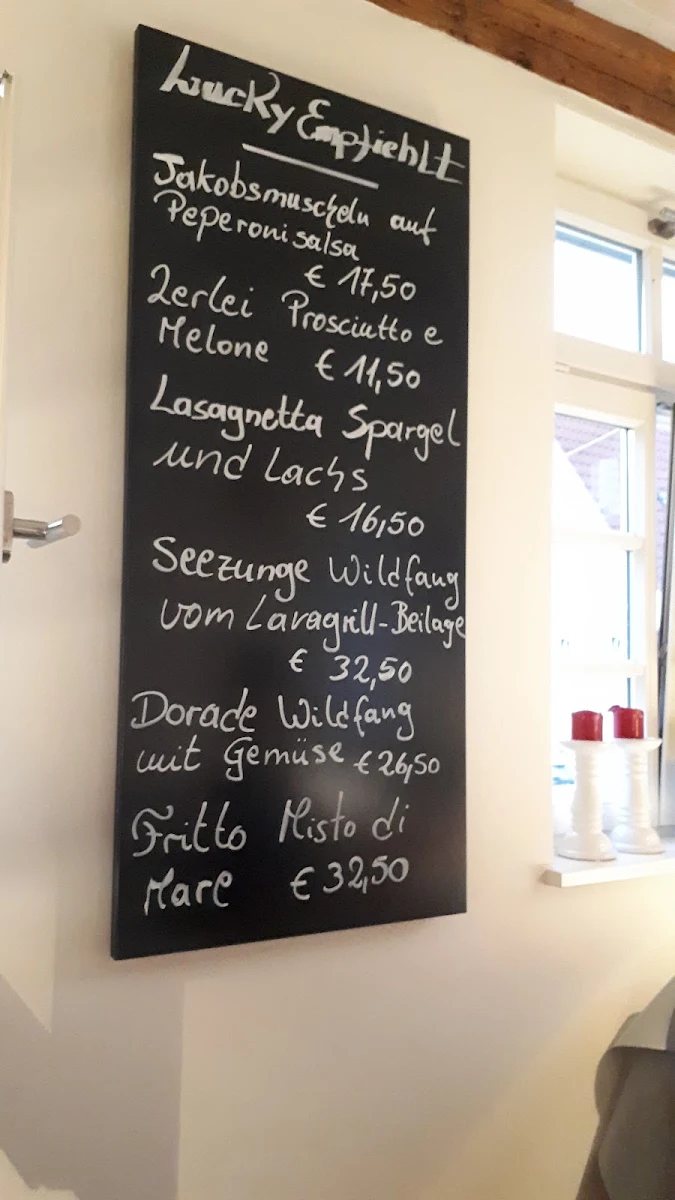 Lucky Empfiehlt
Jakobsmuscheln auf
Peperonisalsa
€ 17,50
2erlei Prosciutto e
Melone € 11,50
Lasagnetta Spargel
und Lachs
€ 16,50
Seezunge Wildfang
vom Lavagrill-Beilage
€ 32,50
Dorade Wildfang
mit Gemüse € 26,50
Fritto Misto di
Mare € 32,50